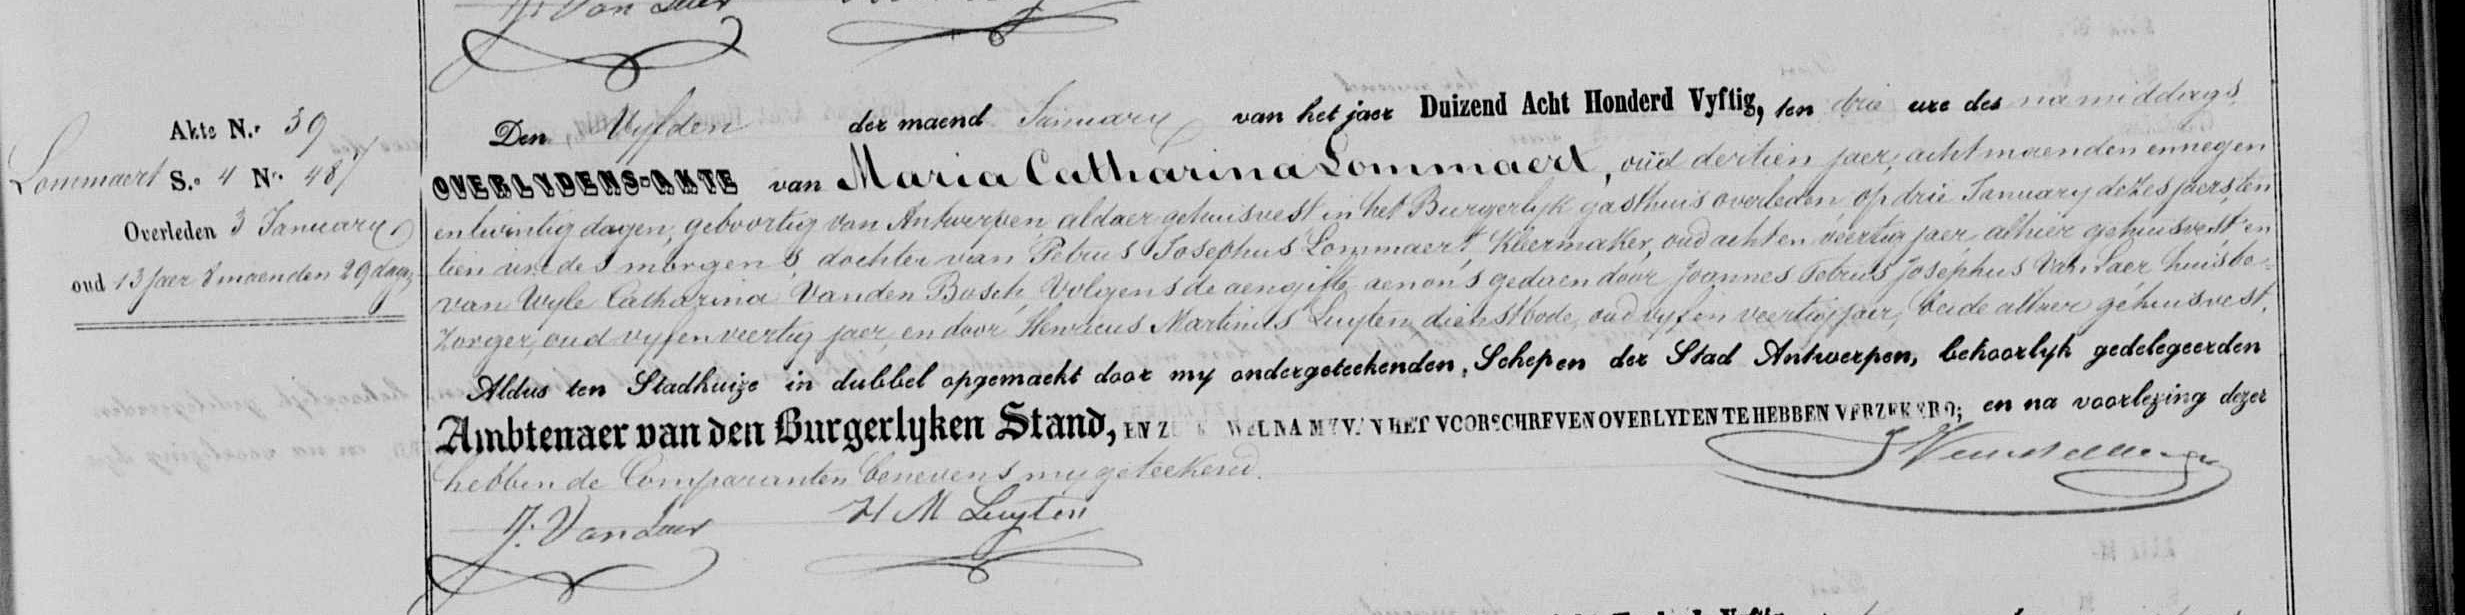 J. Van Laer
Akte N.r 39
Lommaert S.e 4 N.r 487
Overleden 3 January
oud 13 jaer 8 maenden 29 dagen
Den Vyfden der maend January van het jaer Duizend Acht Honderd Vyftig, ten drie ure des namiddags
OVERLYDENS-AKTE van Maria Catharina Lommaert, oud dertien jaer, acht maenden en negen
en twintig dagen, geboortig van Antwerpen aldaer gehuisvest in het Burgerlyk gasthuis overleden op drie January dezes jaers, ten
tien ure des morgens, dochter van Petrus Josephus Lommaert, Kleermaker, oud acht en veertig jaer, alhier gehuisvest en
van wyle Catharina Vanden Bosch, Volgens de aengifte aen ons gedaen door Joannes Petrus Josephus Van Laer huisbe-
zorger, oud vyf en veertig jaer, en door Henricus Martinus Luyten dienstbode, oud vyf en veertig jaer, beide alhier gehuisvest.
Aldus ten Stadhuize in dubbel opgemaekt door my ondergeteekenden, Schepen der Stad Antwerpen, behoorlyk gedelegeerden
Ambtenaer van den Burgerlyken Stand, EN Z WEL NA MY VAN HET VOORSCHREVEN OVERLYDEN TE HEBBEN VERZEKERD; en na voorlezing dezer
hebben de Comparanten benevens my geteekend.
J. Van Laer H M Luyten